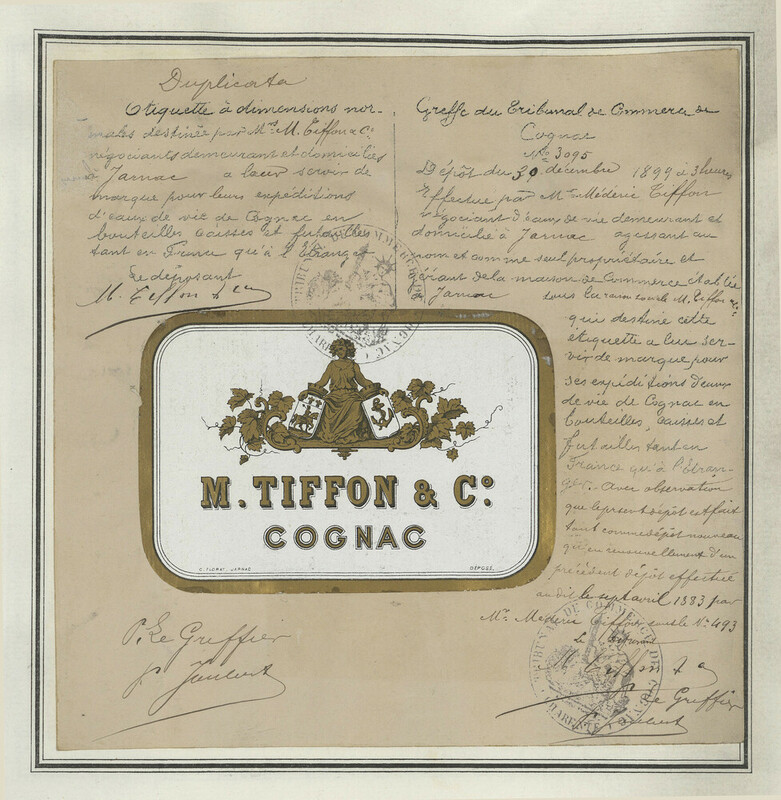 Duplicata
Etiquette à dimensions nor-
males destinée par Mrs M. Tiffon & Co
négociants demeurant et domiciliés
à Jarnac a leur servir de
marque pour leurs expéditions
d'eaux de vie de Cognac en
bouteilles caisses et futailles
tant en France qu'à l'Etranger
Le déposant
M. Tiffon & Co
Greffe du Tribunal de Commerce de
Cognac
No 3095
Dépôt du 30 décembre 1899 à 3 heures
Effectué par Mr Médéric Tiffon
négociant d'eaux de vie demeurant et
domicilié à Jarnac agissant au
nom et comme seul propriétaire et
gérant de la maison de Commerce établie
à Jarnac sous la raison sociale M. Tiffon & Co
qui destine cette
étiquette a lui ser-
vir de marque pour
ses expéditions d'eaux
de vie de Cognac en
bouteilles, caisses et
futailles tant en
France qu'à l'Etran-
ger. Avec observation
que le présent dépôt est fait
tant comme dépôt nouveau
qu'en renouvellement d'un
précédent dépôt effectué
audit le sept avril 1883 par
Mr Médéric Tiffon sous le No 493
M. Tiffon & Co
Le Greffier
Joubert
TRIBUNAL DE COMMERCE DE COGNAC
CHARENTE
M. TIFFON & Co.
COGNAC
C. FLORAT, JARNAC
DÉPOSÉ.
P. Le Greffier
Joubert
TRIBUNAL DE COMMERCE DE COGNAC
CHARENTE